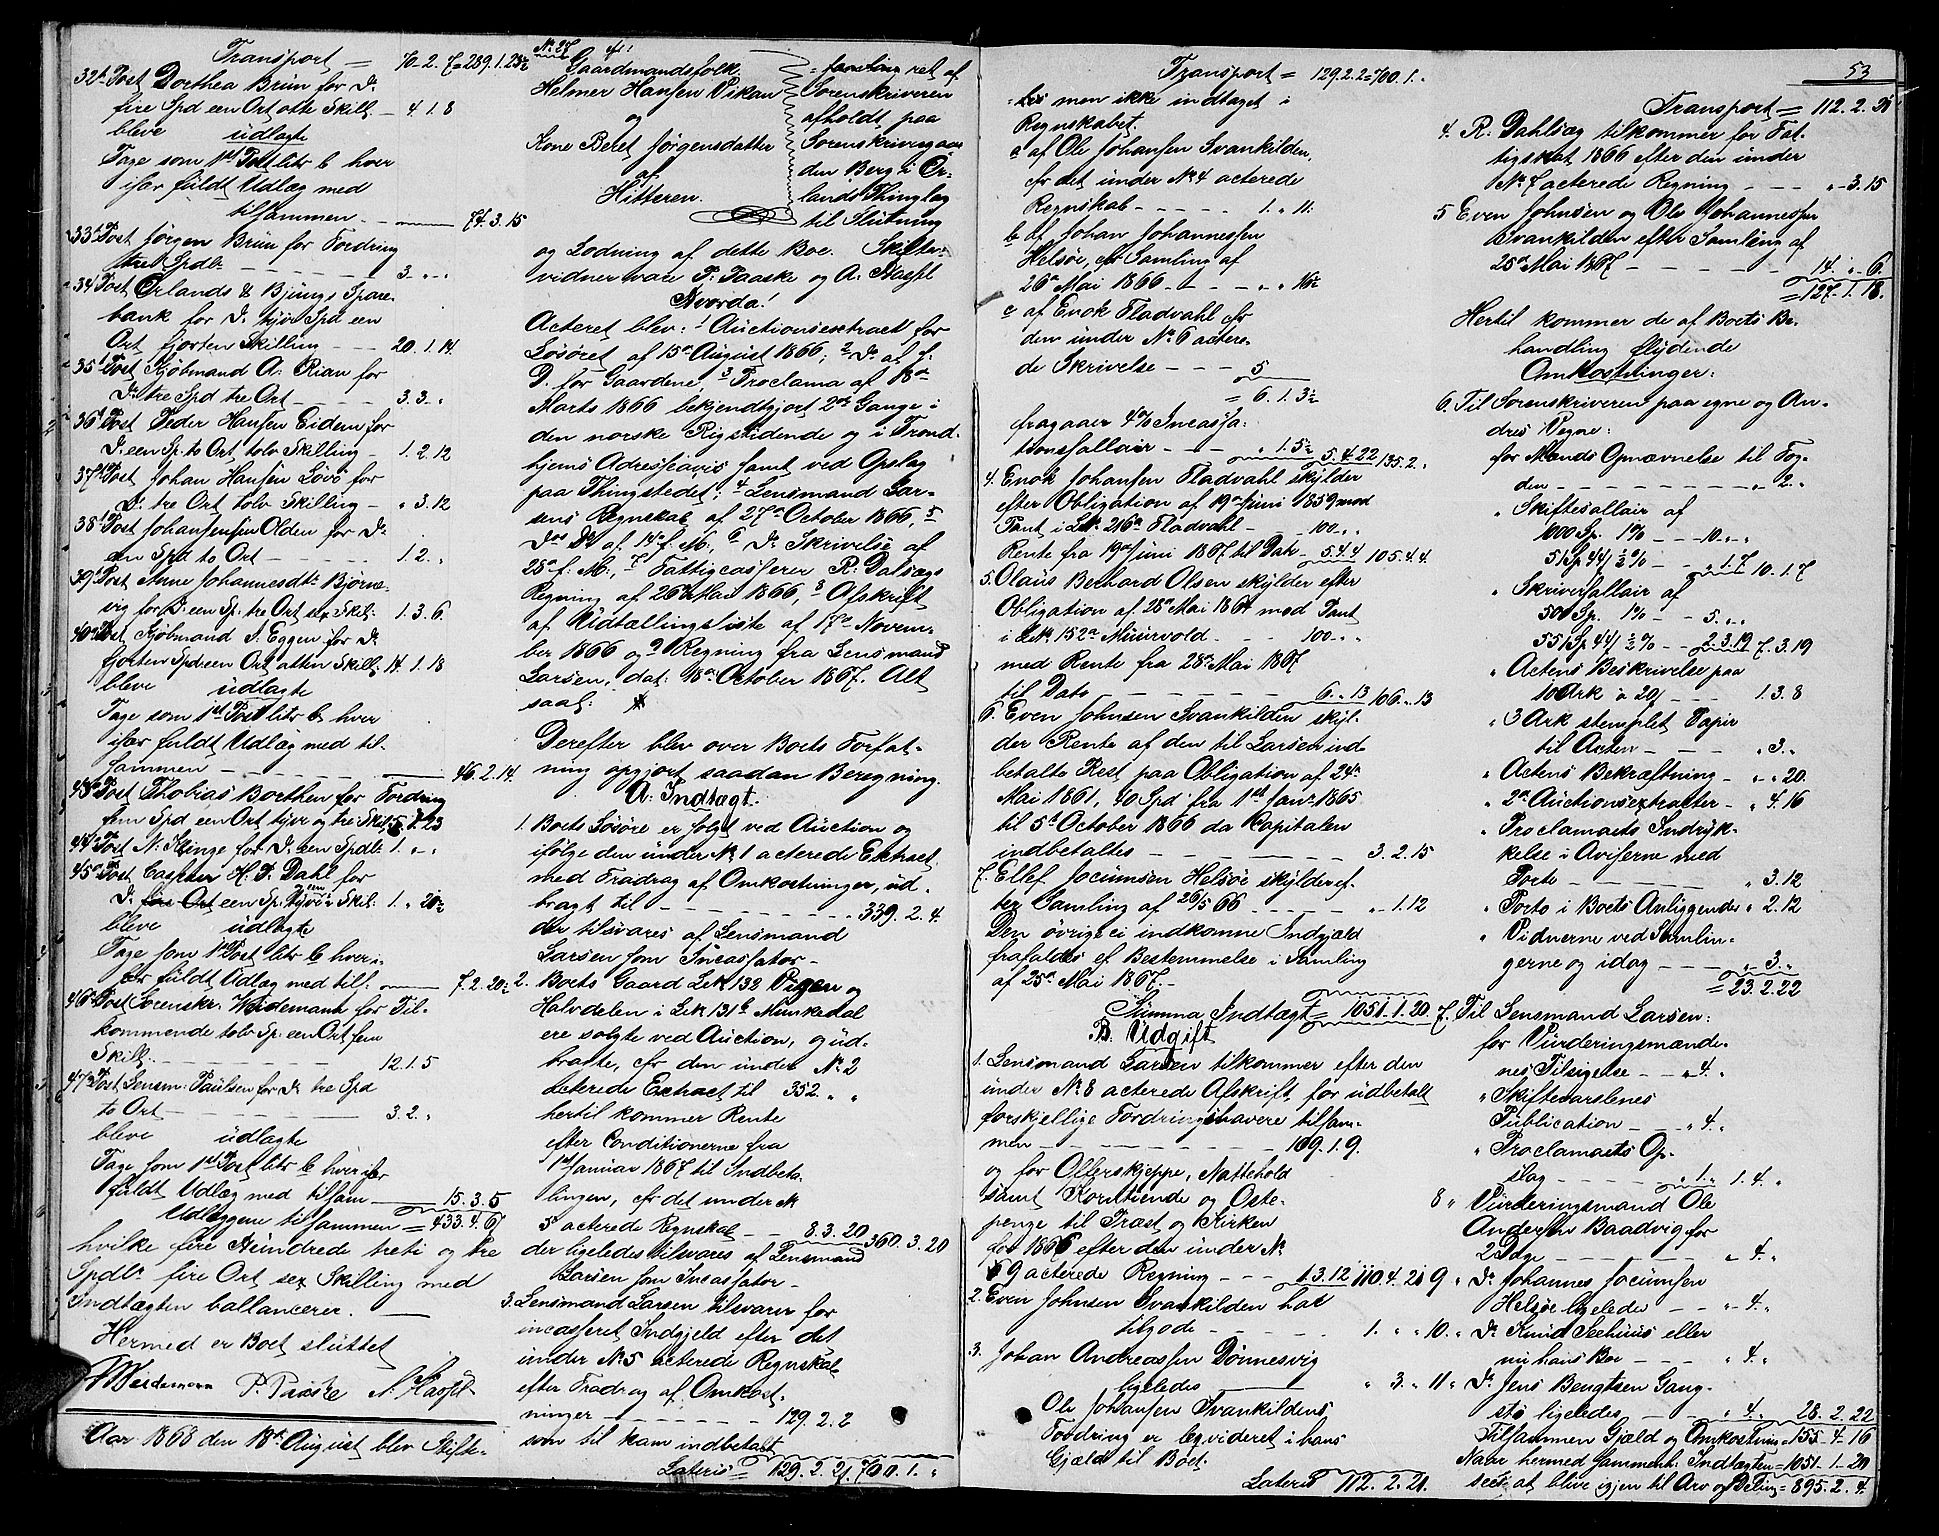 Transport = 70. 2. 7 = 289. 1. 23½
32te Post Dorthea Brun for Do
fire Spd een Ort otte Skill. — 4. 1. 8
bleve udlagte
Tage som 1ste Post litr b hver
især fuldt Udlæg med
tilsammen — 74. 3. 15
33te Post Jørgen Brun for Fordring
tre Spdlr — 3. „ „
34te Post Ørlands & Bjugns Spare-
bank for Do tyve Spd een
Ort fjorten Skilling — 20. 1. 14
35te Post Kjøbmand A. Rian for
Do tre Spd tre Ort — 3. 3. „
36te Post Peder Hansen Eidem for
Do een Sp. to Ort tolv Skilling — 1. 2. 12
37te Post Johan Hansen Løvø for
Do tre Ort tolv Skilling — „ 3. 12
38te Post Johan Jensen Olden for Do
en Spd to Ort — 1. 2. „
39te Post Anne Johannesdtr Bjørne-
vig for Do een Sp. tre Ort sex Skil: 1. 3. 6
40de Post Kjøbmand I. Eggen for Do
fjorten Spd een Ort atten Skill. 14. 1. 18
bleve udlagte
Tage som 1ste Post litr b hver
især fuldt Udlæg med til-
sammen — 46. 2. 14
43de Post Thobias Boethen for Fordring
fem Spd een Ort tyve og tre Skil: 5. 1. 23
44de Post N. Stenge for Do een Spdlr 1. „ „
45de Post Casper H. D. Dahl for
Do een Sp. tyve Skil: 1. „ 20½
bleve udlagte
Tage som 1ste Post litr b hver i-
sær fuldt Udlæg med till: — 7. 2. 20½
46de Post Sorenskr. Weidemann for Til-
kommende tolv Sp. een Ort fem
Skill: — 12. 1. 5
47de Post Lensm: Paulsen for Do tre Spd
to Ort — 3. 2. „
bleve udlagte
Tage som 1ste Post litr b hver især
fuldt Udlæg med tilsam — 15. 3. 5
Udlæggene tilsammen = 433. 4. 6
hvilke fire Hundrede treti og tre
Spdlr fire Ort sex Skilling med
Indtægten ballancerer.
Hermed er Boet sluttet
Weidemann P. Paaske A. Hasfel
Aar 1868 den 18de August blev Skifte-
No 27
Gaardmandsfolk
Helmer Hansen Vikan
og
Kone Beret Jørgensdatter
af
Hitteren.
samling ret af
Sorenskriveren
afholdt paa
Sorenskrivergaar-
den Berg i Ør-
lands Thinglag
til Slutning
og Lodning af dette Boe. Skifte-
vidner vare P. Paaske og A. Hasfel
Hvorda!
Acteret blev: 1 Auctionsextract for
Løsøret af 15de August 1866, 2 Do af f.
D. for Gaardene, 3 Proclama af 18de
Marts 1866 bekjendtgjort 2de Gange i
den norske Rigstidende og i Trond-
hjems Adresseavis samt ved Opslag
paa Thingstedet; 4 Lensmand Lar-
sens Regnskab af 27de October 1866, 5
Dos Do af 14de f. M., 6 Do Skrivelse af
28de f. M., 7 Fattigcasserer R. Dalsægs
Regning af 26de Mai 1866, 8 Afskrift
af Udtællingsliste af 17de Novem-
ber 1866 og 9 Regning fra Lensmand
Larsen, dat: 18de October 1867. Alt
saal:
Derefter blev over Boets Forfat-
ning opgjort saadan Beregning.
A. Indtægt.
1. Boets Løsøre er solgt ved Auction og
ifølge den under No 1 acterede Extract
med Fradrag af Omkostninger, ud-
bragt til — 339. 2. 4.
der tilsvares af Lensmand
Larsen som Incassator —
2. Boets Gaard Lek 132 Vigen og
Halvdelen i Lek 131b Munkedal
ere solgte ved Auction, og ud-
bragte, cfr den under No 2
acterede Extract til 352 „ „
hertil kommer Rente
efter Conditionerne fra
1ste Januar 1867 til Indbeta-
lingen, cfr det under No
5 acterede Regnskab — 8. 3. 20 360. 3. 20
der ligeledes tilsvares af Lensmand
Larsen som Incassator —
3. Lensmand Larsen tilsvarer for
incasseret Indgjeld efter det
under No 5 acterede Regnskab
efter Fradrag af Omkost-
ninger — 129. 2. 2
som til kam indbetalt
Lateris = 129. 2. 2. 700. 1. „
Transport = 129. 2. 2 = 700. 1. „
tes men ikke indtaget i
Regnskabet.
a af Ole Johansen Svankilden,
cfr det under No 4 acterede
Regnskab — 1. „ 11.
b af Johan Johannessen
Helsøe, cfr Samling af
26de Mai 1866 — „ „ 16½
c af Enok Fladvahl cfr
den under No 6 actere-
de Skrivelse — 5
= 6. 1. 3½
fragaaer 4% Incassa-
tionssallair — „ 1. 5½ 5. 4. 22 135. 2. „
4. Enok Johansen Fladvahl skylder
efter Obligation af 19de Juni 1859 mod
Pant i Lek 216a Fladvahl — 100. „ „
Rente fra 19de Juni 1867 til Dato — 5. 4. 4 105. 4. 4
5. Olaus Berhard Olsen skylder efter
Obligation af 28de Mai 1861 mod Pant
i Lek 152a Muurvold — 100. „ „
med Rente fra 28de Mai 1867
til Dato — 6. „ 13 106. „ 13
6. Even Johnsen Svankilden skyl-
der Rente af den til Larsen ind-
betalte Rest paa Obligation af 24de
Mai 1861, 40 Spd fra 1ste Janr 1865
til 5te October 1866 da Capitalen
indbetaltes — 3. 2. 15
7. Ellef Jocumsen Helsøe skylder ef-
ter Samling af 26/5 66 — „ 1. 12
Den øvrige ei indkomne Indgjæld
frafaldes ef Bestemmelse i Samling
af 25de Mai 1867. —
Summa Indtægt = 1051. 1. 20
B. Udgift
1. Lensmand Larsen tilkommer efter den
under No 8 acterede Afskrift, for udbetalt
forskjellige Fordringshavere tilsam-
men — 109. 1. 9.
og for Offerskjeppe, Nattehold
samt Korntiende og Oste-
penge til Præst og Kirken
for 1866 efter den under No
9 acterede Regning — 1. 3. 12 110. 4. 21
2. Even Johnsen Svankilden har
tilgode — 1. „ „
3. Johan Andreassen Dønnesvig
ligeledes — „ 3. „
Ole Johansen Svankildens
Fordring er liqvideret i hans
Gjæld til Boet.
Lateris 112. 2. 21.
53
Transport = 112. 2. 21
4. R. Dahlsæg tilkommer for Fat-
tigskat 1866 efter den under
No 7 acterede Regning — „ 3. 15
5 Even Johnsen og Ole Johannessen
Svankilden efter Samling af
25de Mai 1867 — 14. „ 6.
= 127. 1. 18.
Hertil kommer de af Boets Be-
handling flydende
Omkostninger:
6. Til Sorenskriveren paa egne og An-
dres Vegne:
for Mænds Opnævnelse til Fog-
den — „ 2. „
„ Skiftesallair af
1000 Sp. 1% — 10. „ „
51 Sp 44/ ½% — „ 1. 7 10. 1. 7
„ Skriversallair af
500 Sp. 1% — 5. „ „
551 Sp 44/ ½% — 2. 3. 19 7. 3. 19
„ Actens Beskrivelse paa
10 Ark a 20/ — 1. 3. 8
„ 3 Ark stemplet Papir
til Acten — „ 3. „
„ Actens Bekræftning — „ „ 20.
„ 2de Auctionsextracter — „ 4. 16
„ Proclamaets Indryk-
kelse i Aviserne med
Porto — „ 3. 12
„ Porto i Boets Anliggender „ 2. 12
„ Vidnerne ved Samlin-
gerne og idag — „ 3. „
= 23. 2. 22
7. Til Lensmand Larsen:
for Vurderingsmænde-
nes Tilsigelse — „ 4. „
„ Skiftevarslenes
Publication — „ 4. „
„ Proclamaets Op-
slag — „ 1. „ 1. 4. „
8 „ Vurderingsmand Ole
Andersen Baadvig for
2 Dage — „ 4. „
9 „ Do Johannes Jocumsen
Helsøe ligeledes — „ 4. „
10. „ Do Knud Seehuus eller
nu hans Bo — „ 4. „
11 „ Do Jens Bengtsen Gang-
stø ligeledes — „ 4. „ 28. 2. 22
Tilsammen Gjæld og Omkostning = 155. 4. 16
Naar hermed sammenh: Indtægten = 1051. 1. 20
sees at blive igjen til Arv og Deling = 895. 2. 4.